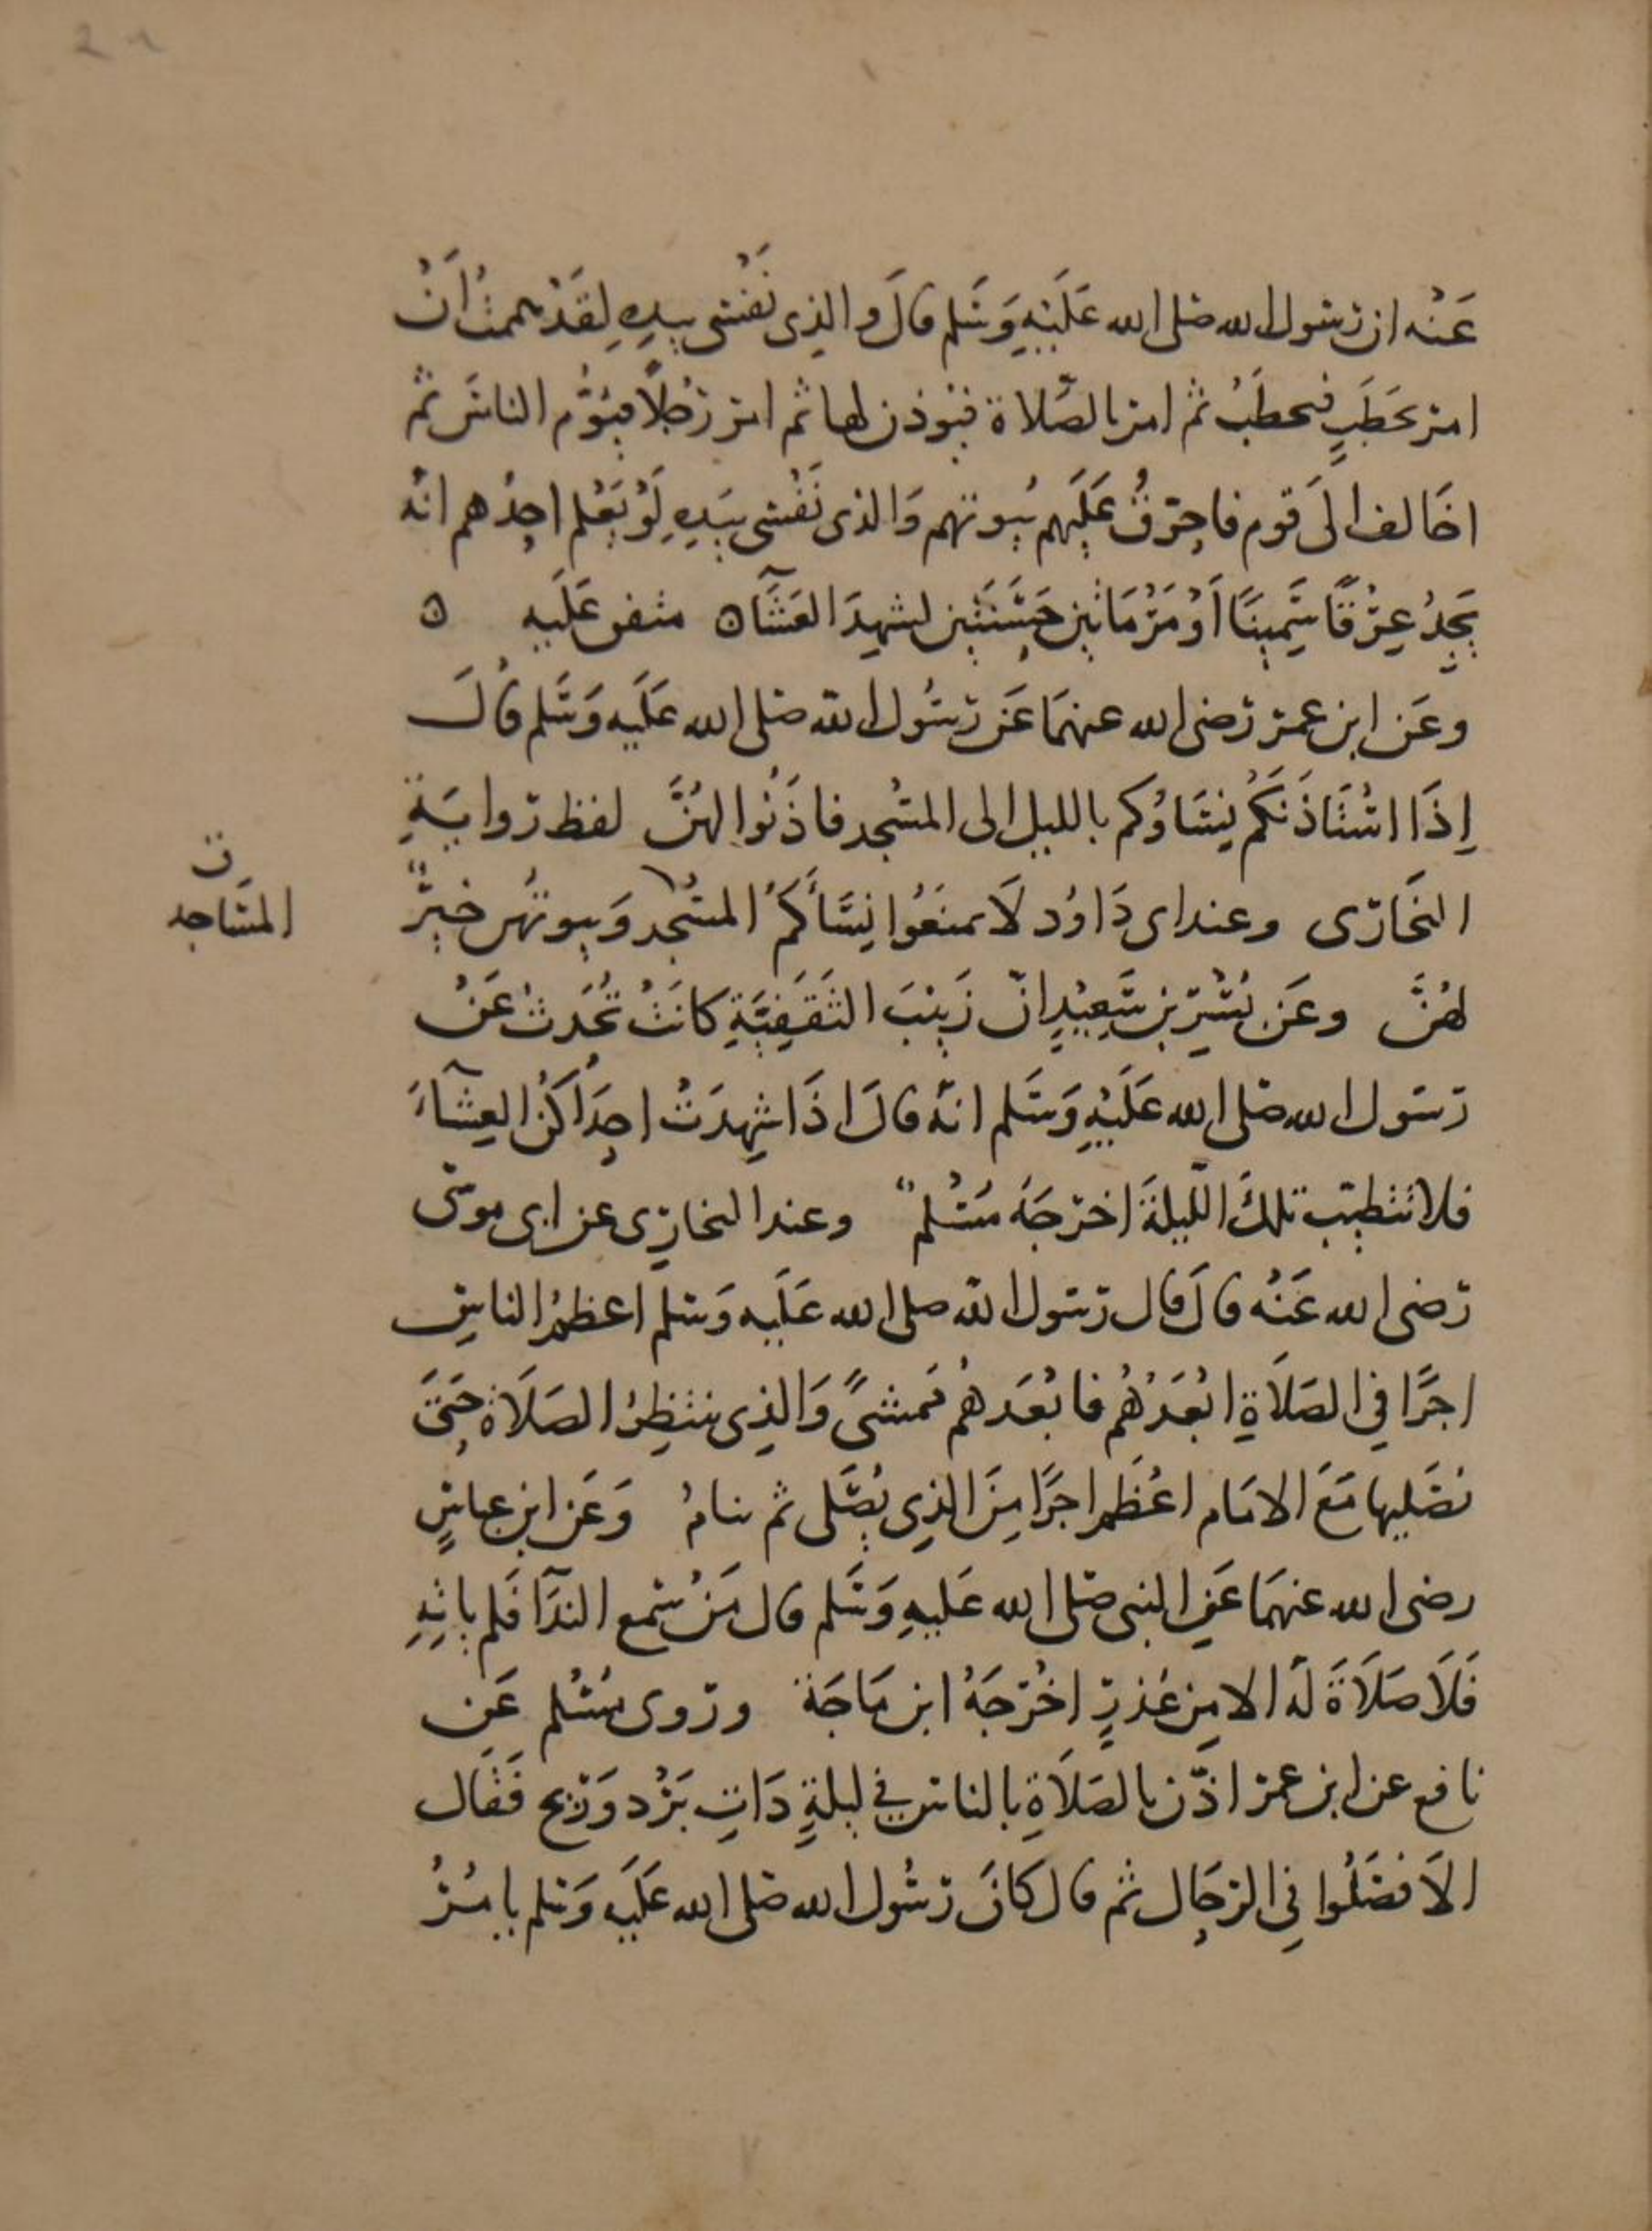 عَنْه ان رسول الله صلى الله عَلَيْهِ وَسَلم قالَ والذِى نَفْسى بيدِهِ لقَدْ هممتُ اَنْ
امر بحَطَبٍ فيحطَبُ ثم امر بالصَّلاة فيوذن لها ثم امر رَجُلاً فيَؤُم الناسَ ثم
اخَالف الَى قوم فاحرِّقُ عَلَيهم بُيوتهم وَالذى نَفْسى بيَدِهِ لَوْ يَعْلم احدُهم انه
يَجِدُ عِرْقًا سَمِينًا اَوْ مَرْمَاتَين حَسَنَتَين لشهِدَ العَشَآ ه متفق عَلَيه ه
وعَن ابن عمر رَضى الله عنهمَا عَن رسُول الله صلى الله عَلَيه وَسَلم قالَ
اِذَا اسْتَاذَنَكم نِسَاؤكم بالليل الى المسْجد فاذَنُوا لهُنَّ لفظ روايَةِ
البخَارى وعند ابى دَاوُد لَا تمنَعُوا نِسَأَكمُ المسْجد وَبيوتُهن خيرٌ
لهُنَّ وعَن بُسْر بن سَعِيْدٍ انّ زَينَبَ الثقَفِيَّةِ كانَتْ تُحَدثُ عَنْ
رسَول الله صَلى الله عَلَيْهِ وَسَلم انه قالَ اذَا شهِدَتْ احِدَاكُن العِشَآءَ
فلا تتطيب تلكَ اللّيلةَ اخرجَهُ مُسْلم وعند البخارى عن ابى موسَى
رَضى الله عَنْه قالَ قال رسَول الله صلى الله عَلَيه وَسلم اعظمُ الناسِ
اجرًا فى الصَلَاةِ ابْعَدُهُم فابْعَدهُم مَمشىً وَالذِى ينتظِرُ الصَلَاة حَتىَ
يصَليها مَعَ الامَام اعْظَم اجرًا مِنَ الذِى يُصَلى ثم ينامُ وَعَن ابن عباسٍ
رضى الله عنهمَا عَنِ النبى صَلى الله عَليهِ وَسَلم قال مَنْ سَمع الندَآ فَلم ياتِهِ
فَلَا صَلَاةَ لَهُ الا مِن عُذرٍ اخْرَجَهُ ابن مَاجَة وروى مُسْلم عَن
نافع عن ابن عمر اذّن بالصَلَاةِ بالناس فى ليلةٍ ذَاتِ بَرْد وَريح فَقَال
الاَ فصَلُوا فى الرحَال ثم قال كانَ رسُول الله صَلى الله عَلَيه وَسَلم يا مُرُ
ن
المسَاجد